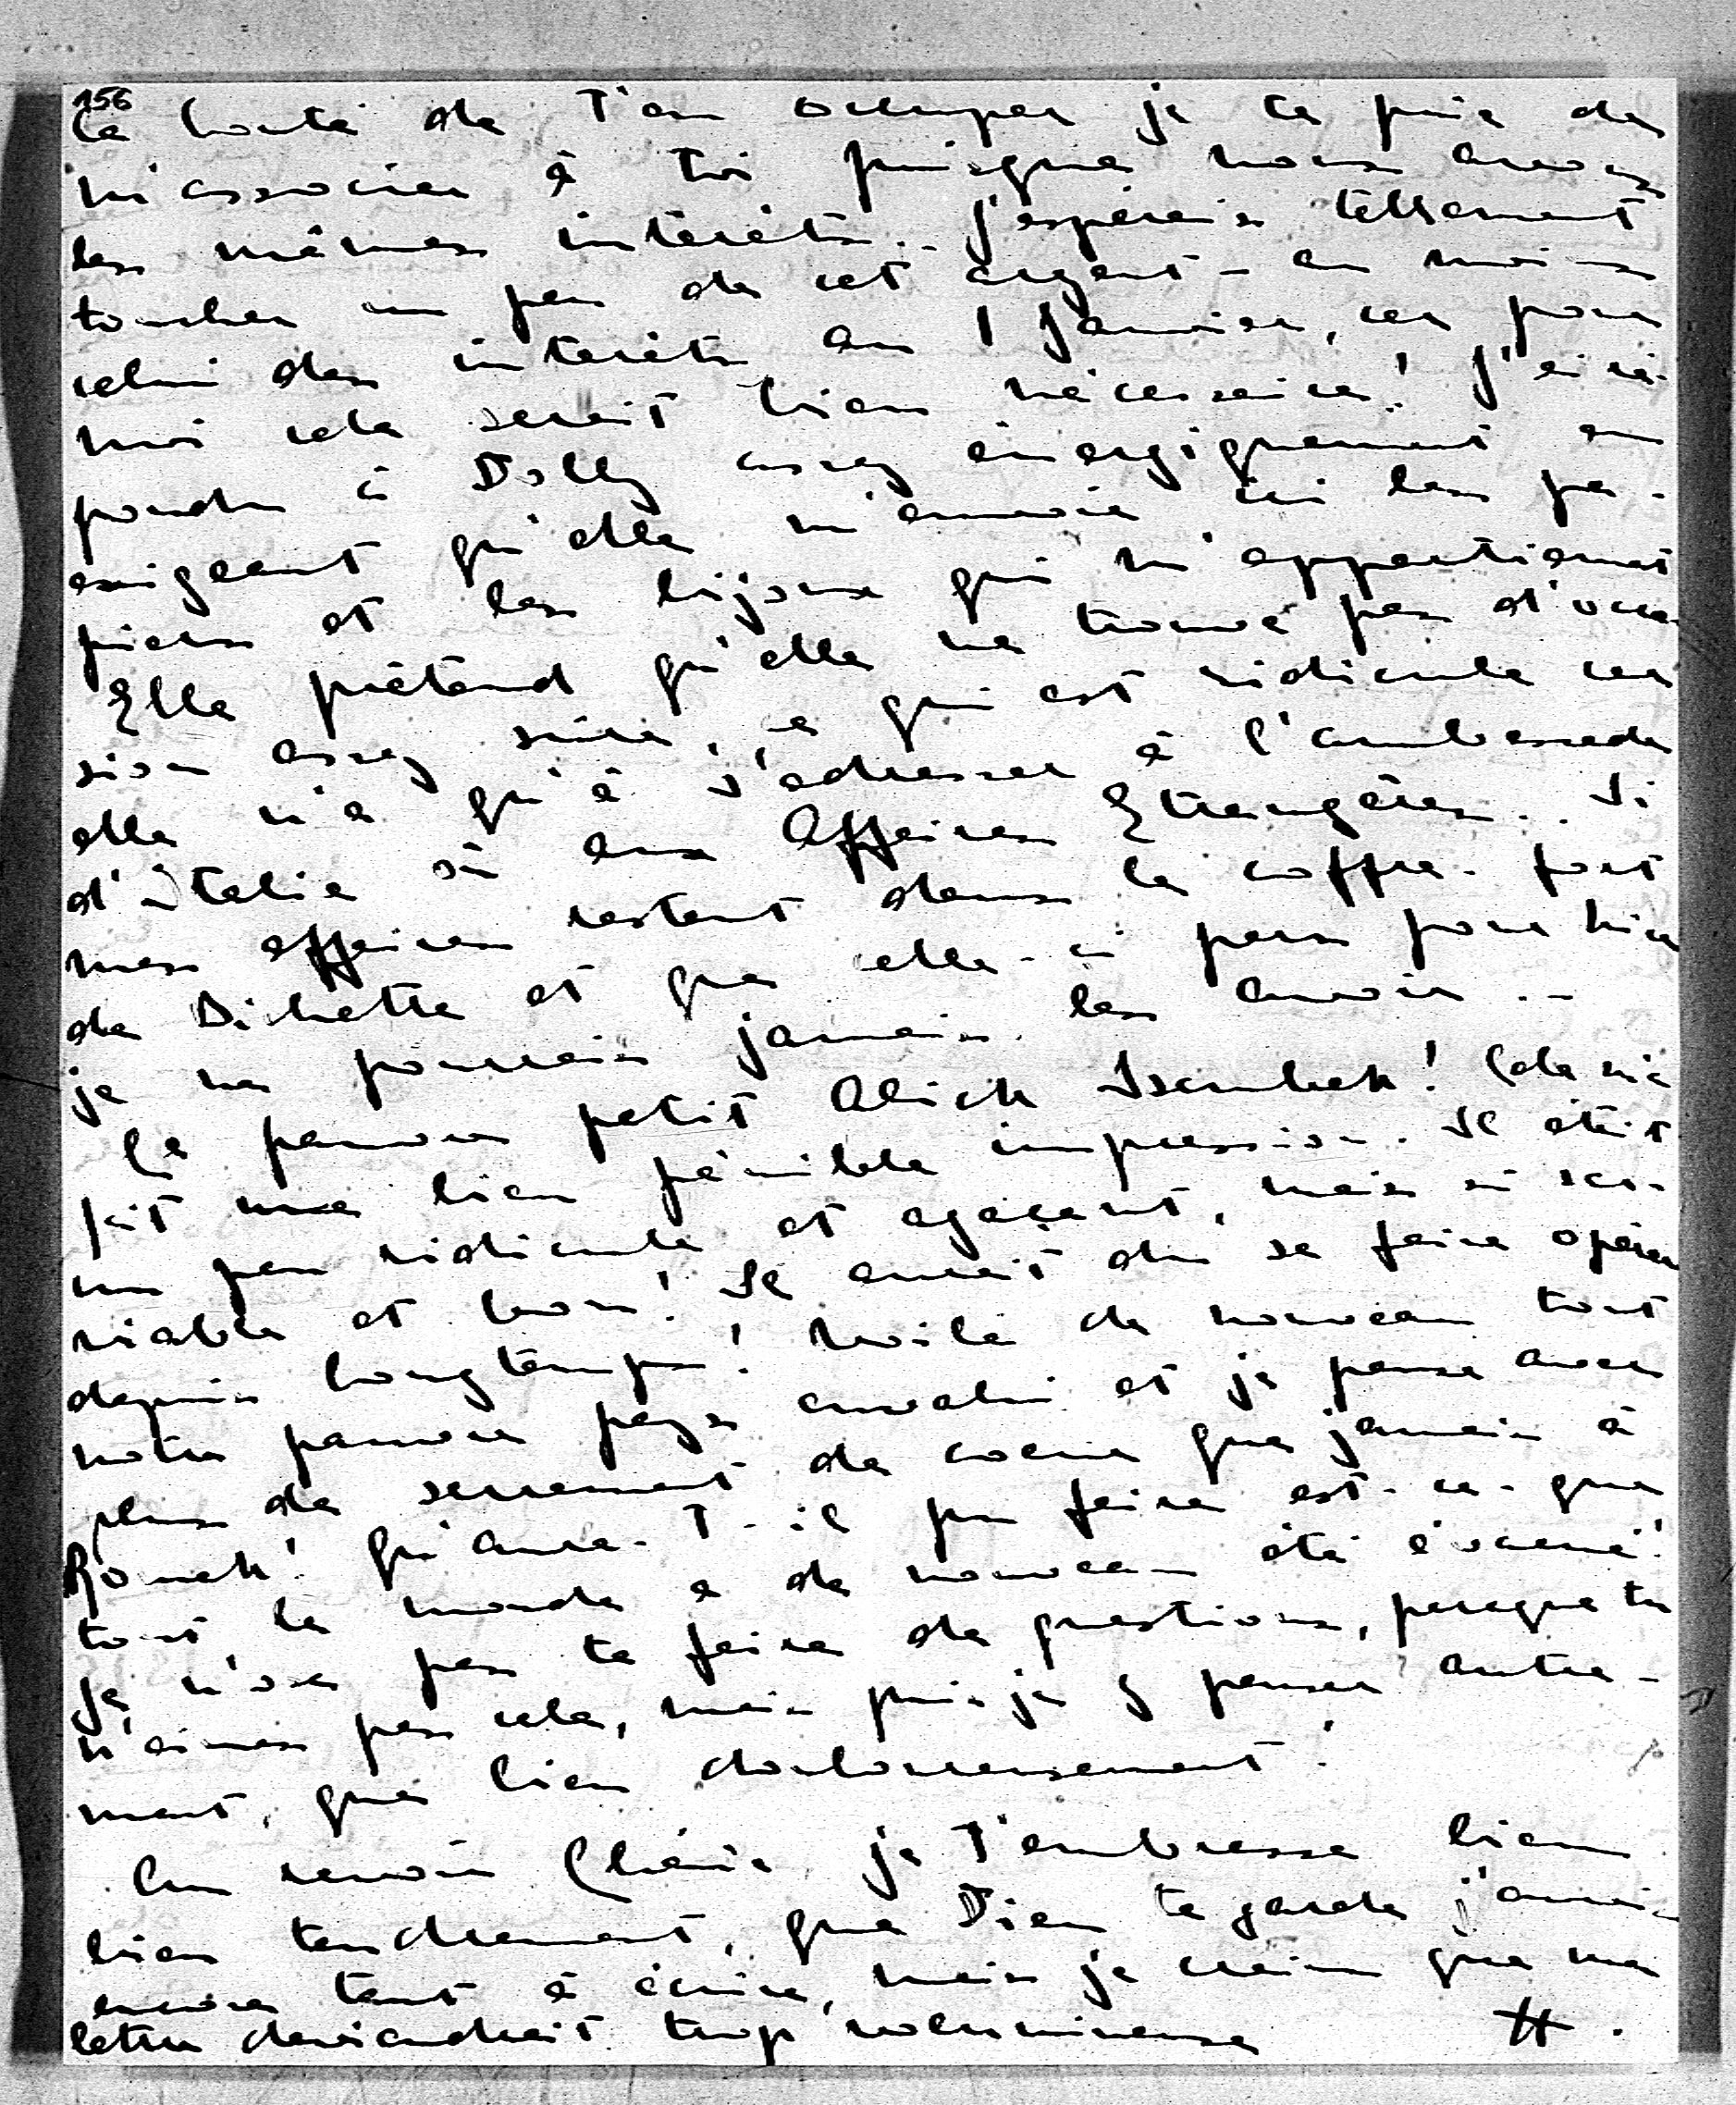 156
la bonté de t'en occuper je te prie de
m'associer à toi puisque nous avons
les mêmes intérêts.. J'espérais tellement
toucher un peu de cet argent - au moins
celui des intérêts au 1 Janvier, car pour
moi cela serait bien nécessaire! J'ai ré-
pondu à Dolly assez énergiquement en
exigeant qu'elle m'envoie ici les pa-
piers et les bijoux qui m'appartiennent
Elle prétend qu'elle ne trouve pas d'occa-
sion assez sûre, ce qui est ridicule car
elle n'a qu'à s'adresser à l'ambassade
d'Italie où aux Affaires Etrangères.. Si
mes affaires restent dans le coffre-fort
de Dichette et que celle-ci part pour
je ne pourrais jamais les avoir..
Le pauvre petit Alick Isenbek! Cela m'a
fait une bien pénible impression. Il était
un peu ridicule et agaçant, mais si ser-
viable et bon! Il aurait du se faire opérer
depuis longtemps! Voilà de nouveau tout
notre pauvre pays envahi et je pense avec
plus de serrement de coeur que jamais à
Romek! qu'aura-t-il pu faire est-ce-que
tout le monde a de nouveau été évacué!
Je n'ose pas te faire de questions, parceque tu
n'aimes pas cela, mais puis je y penser autre-
ment, que bien douloureusement!
Au revoir Chérie je t'embrasse bien
bien tendrement, que Dieu te garde j'aurais
encore tant à écrire, mais je crains que ma
lettre deviendrait trop volumineuse H.